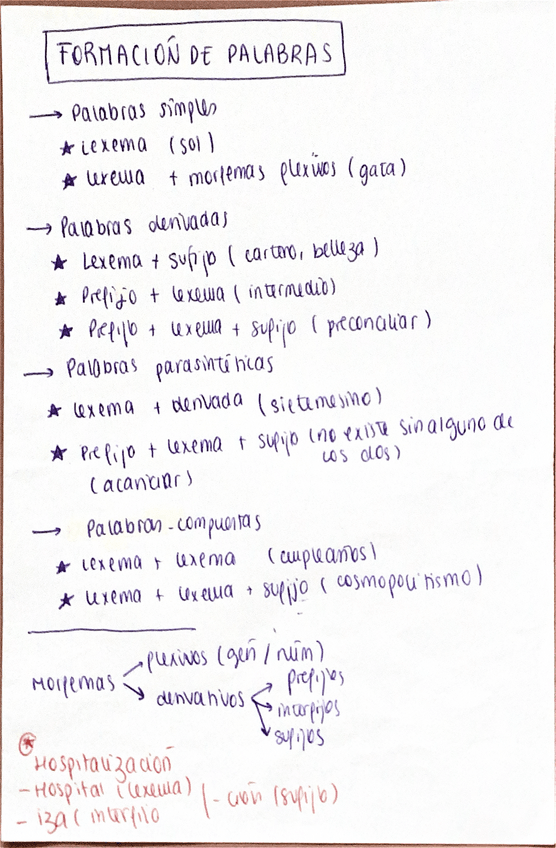 FORMACIÓN DE PALABRAS
→ Palabras simples
★ Lexema (sol)
★ Lexema + morfemas flexivos (gata)
→ Palabras derivadas
★ Lexema + sufijo (cartero, belleza)
★ Prefijo + lexema (intermedio)
★ Prefijo + lexema + sufijo (preconciliar)
→ Palabras parasintéticas
★ Lexema + derivada (sietemesino)
★ Prefijo + lexema + sufijo (no existe sin alguno de
los dos)
(acariciar)
→ Palabras compuestas
★ Lexema + lexema (cumpleaños)
★ Lexema + lexema + sufijo (cosmopolitismo)
Morfemas
flexivos (gén / núm)
derivativos
prefijos
interfijos
sufijos
★ Hospitalización
- Hospital (lexema) (- ción (sufijo)
- iza (interfijo